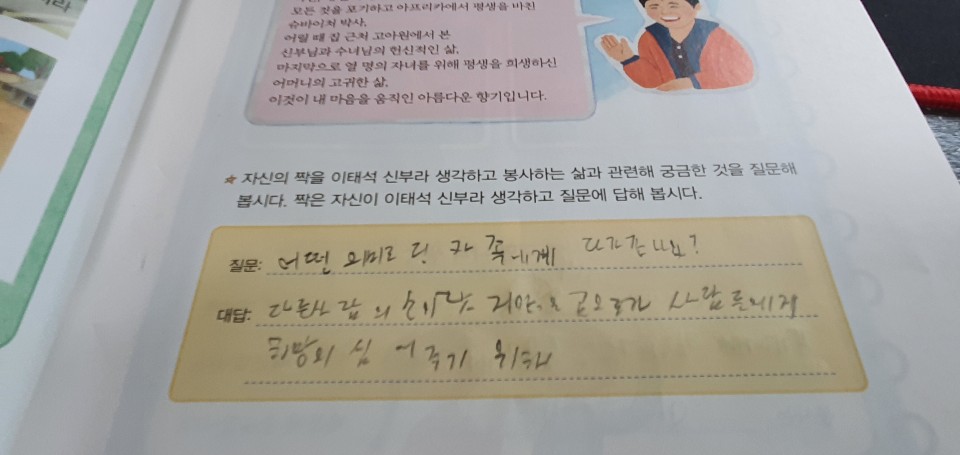 모든 것을 포기하고 아프리카에서 평생을 바친
슈바이처 박사,
어릴 때 집 근처 고아원에서 본
신부님과 수녀님의 헌신적인 삶,
마지막으로 열 명의 자녀를 위해 평생을 희생하신
어머니의 고귀한 삶,
이것이 내 마음을 움직인 아름다운 향기입니다.
★ 자신의 짝을 이태석 신부라 생각하고 봉사하는 삶과 관련해 궁금한 것을 질문해
봅시다. 짝은 자신이 이태석 신부라 생각하고 질문에 답해 봅시다.
질문: 어떤 의미로 딩카 족에게
대답: 다른사람의 사람들에게
희망의 심어주기 위해